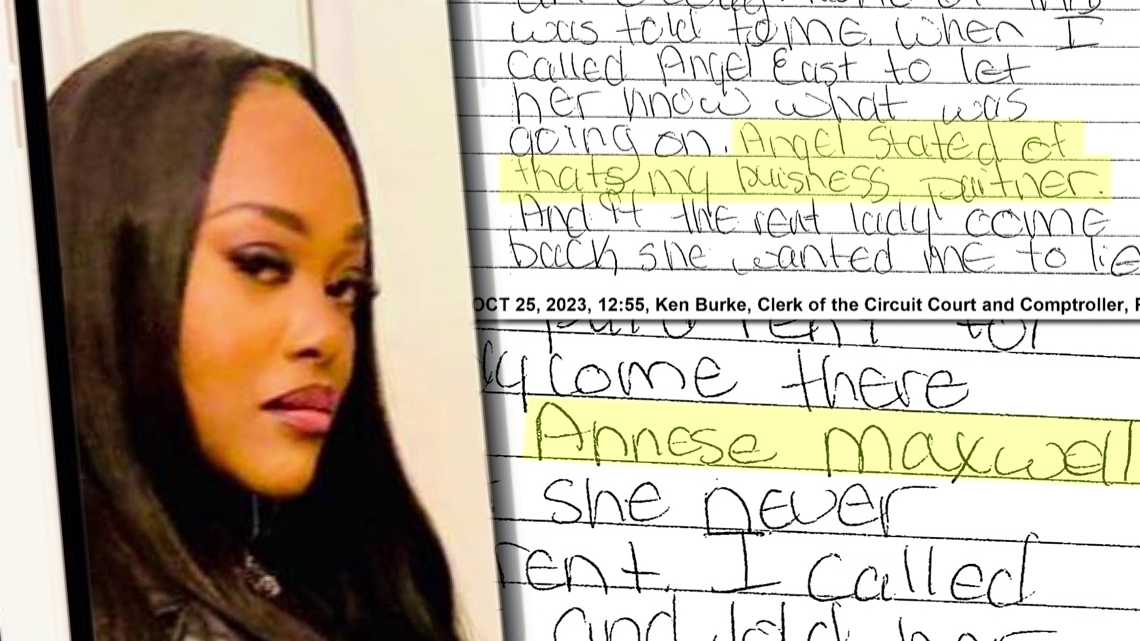 was told to me. When I
Called Angel East to let
her know what was
going on. Angel stated of
thats my buisness partner.
And if the rent lady come
back she wanted me to lie
OCT 25, 2023, 12:55, Ken Burke, Clerk of the Circuit Court and Comptroller,
come there
Annese Maxwell
she never
rent. I called
and told her